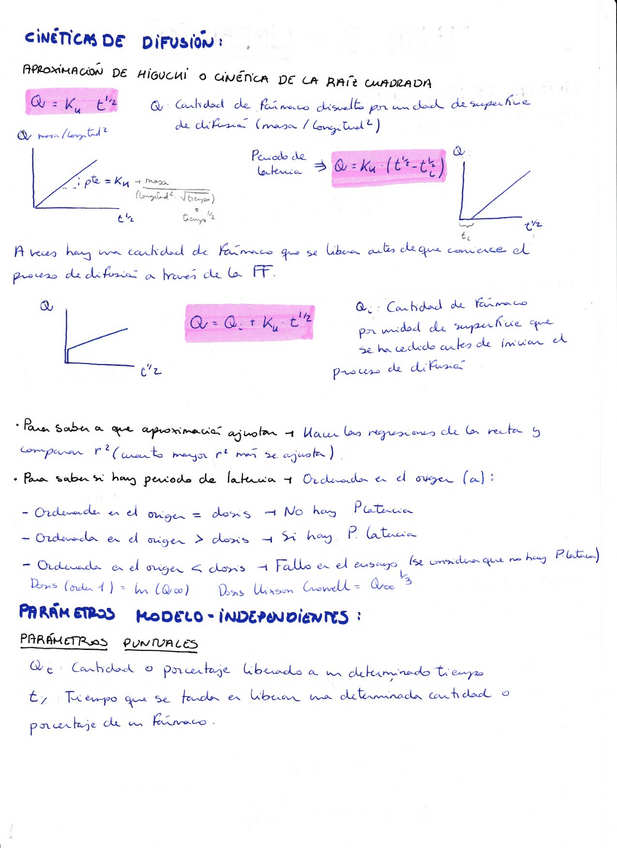 CINÉTICAS DE DIFUSIÓN:
APROXIMACIÓN DE HIGUCHI O CINÉTICA DE LA RAÍZ CUADRADA
Q = K_H t^1/2
Q: Cantidad de Fármaco disuelto por unidad de superficie
de difusión (masa / longitud^2)
Q masa/longitud^2
: pte = K_H → masa
(longitud^2 √tiempo)
tiempo^1/2
t^1/2
Periodo de
latencia ⇒ Q = K_H · (t^1/2 - t_L^1/2)
Q
t_L
t^1/2
A veces hay una cantidad de Fármaco que se libera antes de que comience el
proceso de difusión a través de la FF.
Q
t^1/2
Q = Q_i + K_H · t^1/2
Q_i: Cantidad de Fármaco
por unidad de superficie que
se ha cedido antes de iniciar el
proceso de difusión
· Para saber a que aproximación ajustar → Hacer las regresiones de la recta y
comparar r^2 (cuanto mayor r^2 más se ajusta).
· Para saber si hay periodo de latencia → Ordenada en el origen (a):
- Ordenada en el origen = dosis → No hay P latencia
- Ordenada en el origen > dosis → Si hay P. latencia
- Ordenada en el origen < dosis → Fallo en el ensayo (se considera que no hay P latencia)
Dosis (orden 1) = ln (Q∞) Dosis Hixson Crowell = Q∞^1/3
PARÁMETROS MODELO-INDEPENDIENTES:
PARÁMETROS PUNTUALES
Q_t: Cantidad o porcentaje liberado a un determinado tiempo
Tiempo que se tarda en liberar una determinada cantidad o
porcentaje de un Fármaco.